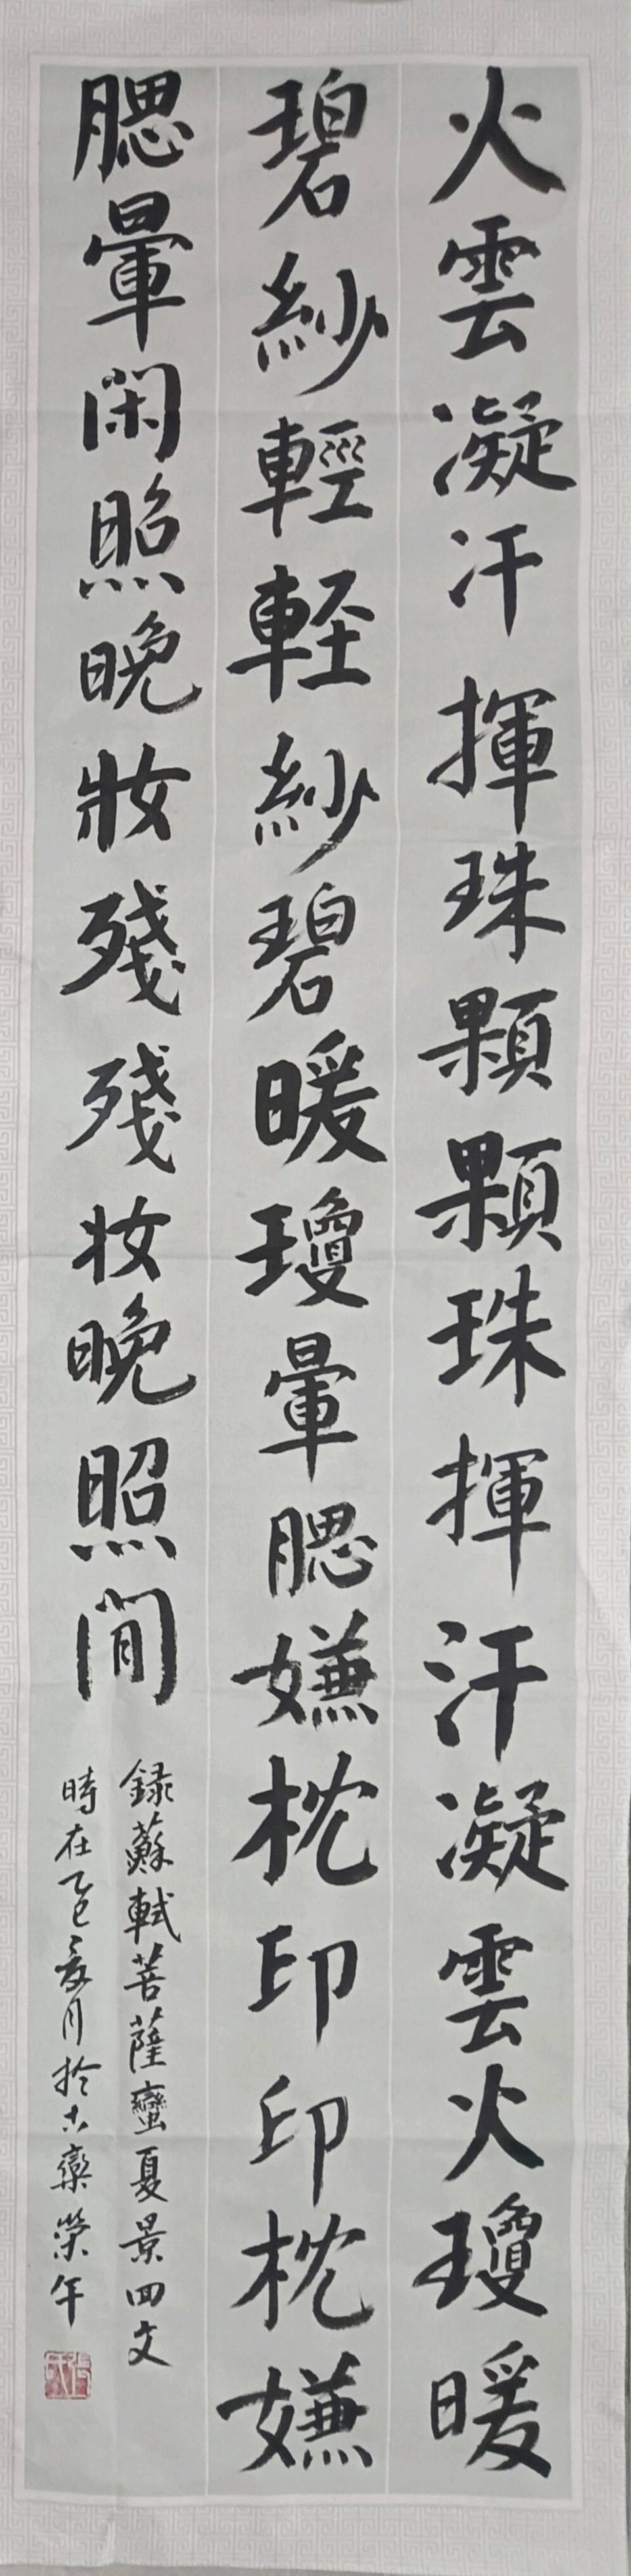 火雲凝汗揮珠顆顆珠揮汗凝雲火瓊暖
碧紗輕輕紗碧暖瓊暈腮嫌枕印印枕嫌
腮暈閑照晚妝殘殘妝晚照閒
録蘇軾菩薩蠻夏景回文
時在乙巳夏月於古欒榮午